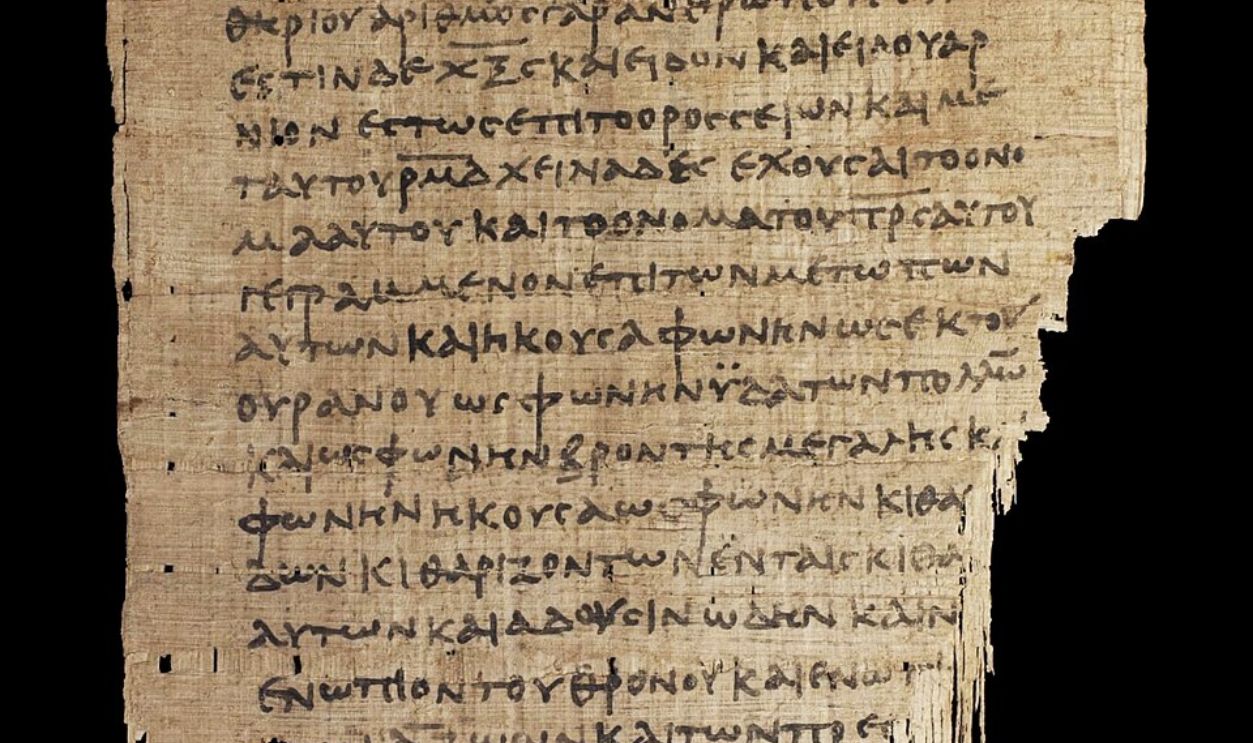 θηριου αριθμος γαρ ανθρωπου
εστιν δε χ̅ξ̅ϛ̅ και ειδον και ειδου αρ
νιον εστως επι το ορος σειων και με
τ αυτου ρ̅μ̅δ̅ χειναδες εχουσαι το ονο
μα αυτου και το ονομα του π̅ρ̅ς̅ αυτου
γεγραμμενον επι των μετωπων
αυτων και ηκουσα φωνην ως εκ του
ουρανου ως φωνην ϋδατων πολλω̅
και ως φωνην βροντης μεγαλης κ
φωνην ηκουσα ως φωνην κιθα
δων κιθαριζοντων εν ταις κιθα
αυτων και αδουσιν ωδην καιν
ενωπιον του θρονου και ενωπ
και των πρες